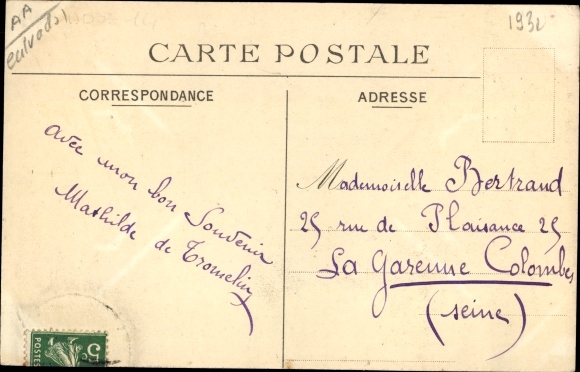 AA
Calvados
1932
CARTE POSTALE
CORRESPONDANCE
ADRESSE
avec mon bon Souvenir
Mathilde de Tromelin
Mademoiselle Bertrand
25 rue de Plaisance 25
La Garenne Colombes
(Seine)
5c
POSTES